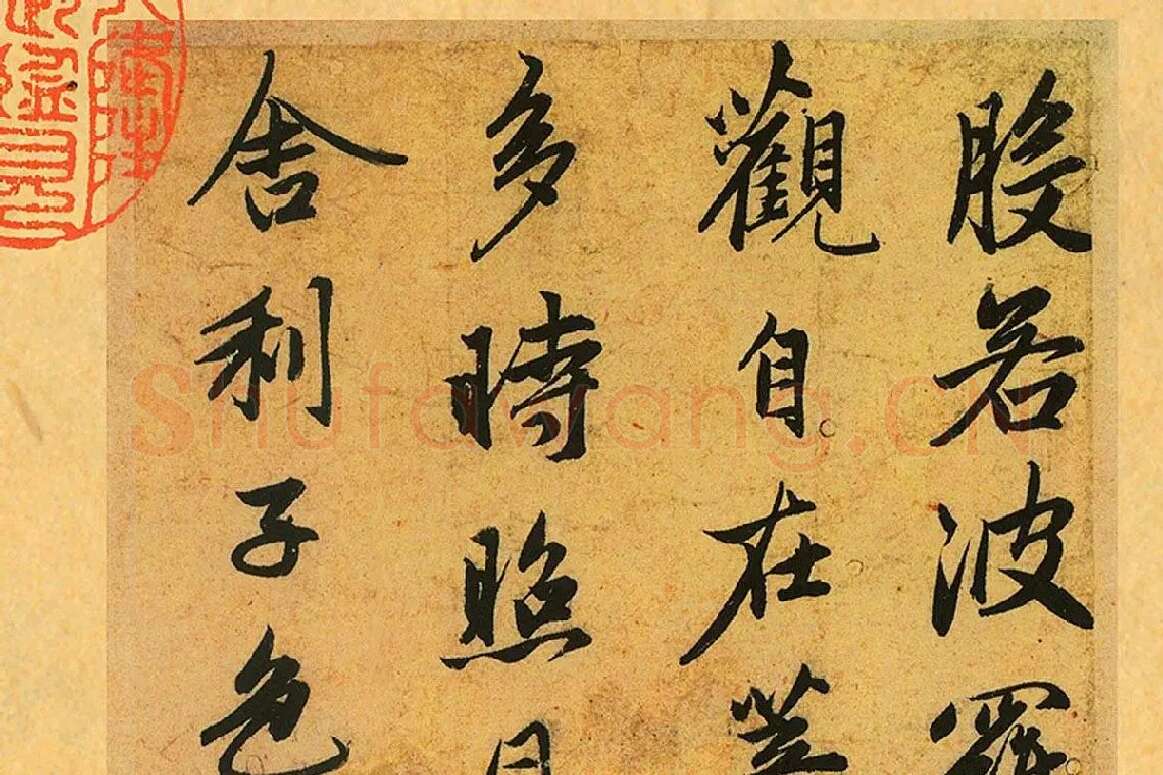 般若波羅
觀自在菩
多時照
舍利子色
Shufawang.CN